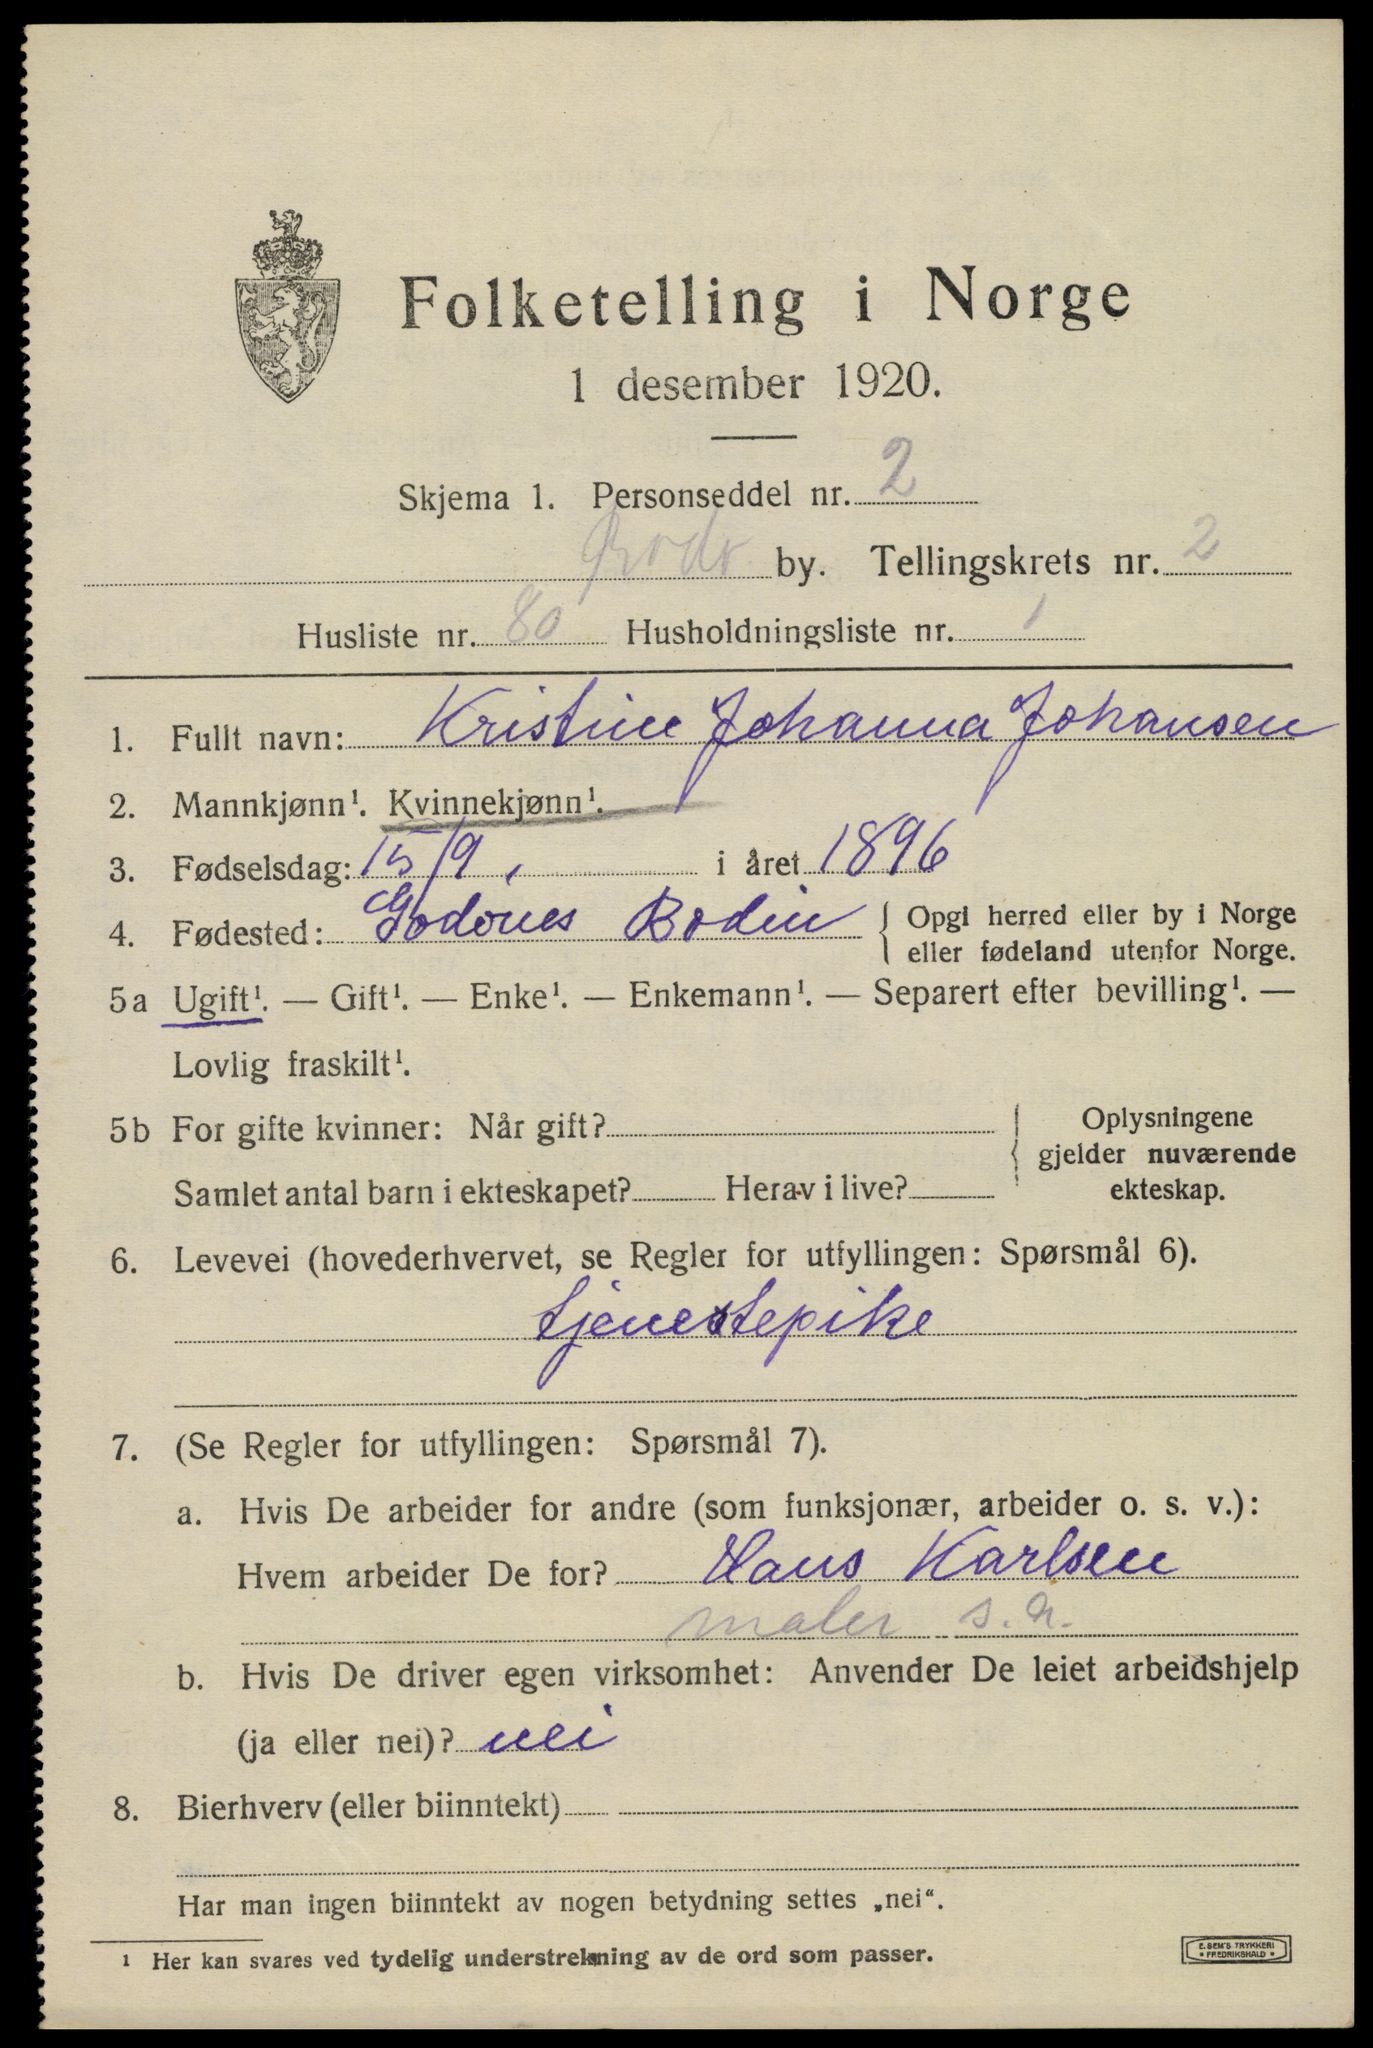 Folketelling i Norge
1 desember 1920.
Skjema 1. Personseddel nr. 2
Bodø by. Tellingskrets nr. 2
Husliste nr. 80 Husholdningsliste nr. 1
1. Fullt navn: Kristine Johanna Johansen
2. Mannkjønn¹. Kvinnekjønn¹.
3. Fødselsdag: 15/9, i året 1896
4. Fødested: Godønes Bodin { Opgi herred eller by i Norge
eller fødeland utenfor Norge.
5a Ugift¹. — Gift¹. — Enke¹. — Enkemann¹. — Separert efter bevilling¹. —
Lovlig fraskilt¹.
5b For gifte kvinner: Når gift? { Oplysningene
gjelder nuværende
Samlet antal barn i ekteskapet? Herav i live? ekteskap.
6. Levevei (hovederhvervet, se Regler for utfyllingen: Spørsmål 6).
tjenestepike
7. (Se Regler for utfyllingen: Spørsmål 7).
a. Hvis De arbeider for andre (som funksjonær, arbeider o. s. v.):
Hvem arbeider De for? Hans Karlsen
maler s. n.
b. Hvis De driver egen virksomhet: Anvender De leiet arbeidshjelp
(ja eller nei)? nei
8. Bierhverv (eller biinntekt)
Har man ingen biinntekt av nogen betydning settes „nei“.
¹ Her kan svares ved tydelig understrekning av de ord som passer.
E. SEM'S TRYKKERI
• FREDRIKSHALD •